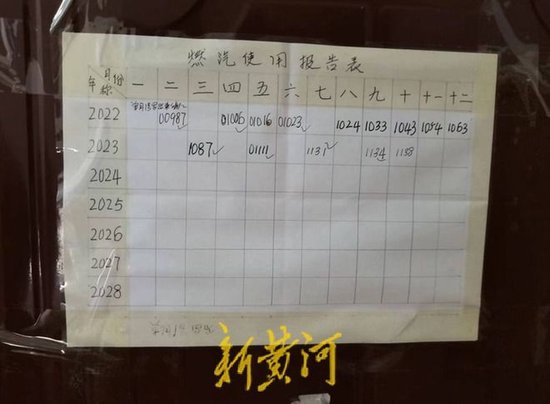 燃汽使用报告表
月份
年 一 二 三 四 五 六 七 八 九 十 十一 十二
2022 00987 01006 01016 01023 1024 1033 1043 1054 1063
2023 1087 01111 1131 1134 1158
2024
2025
2026
2027
2028
新黄河